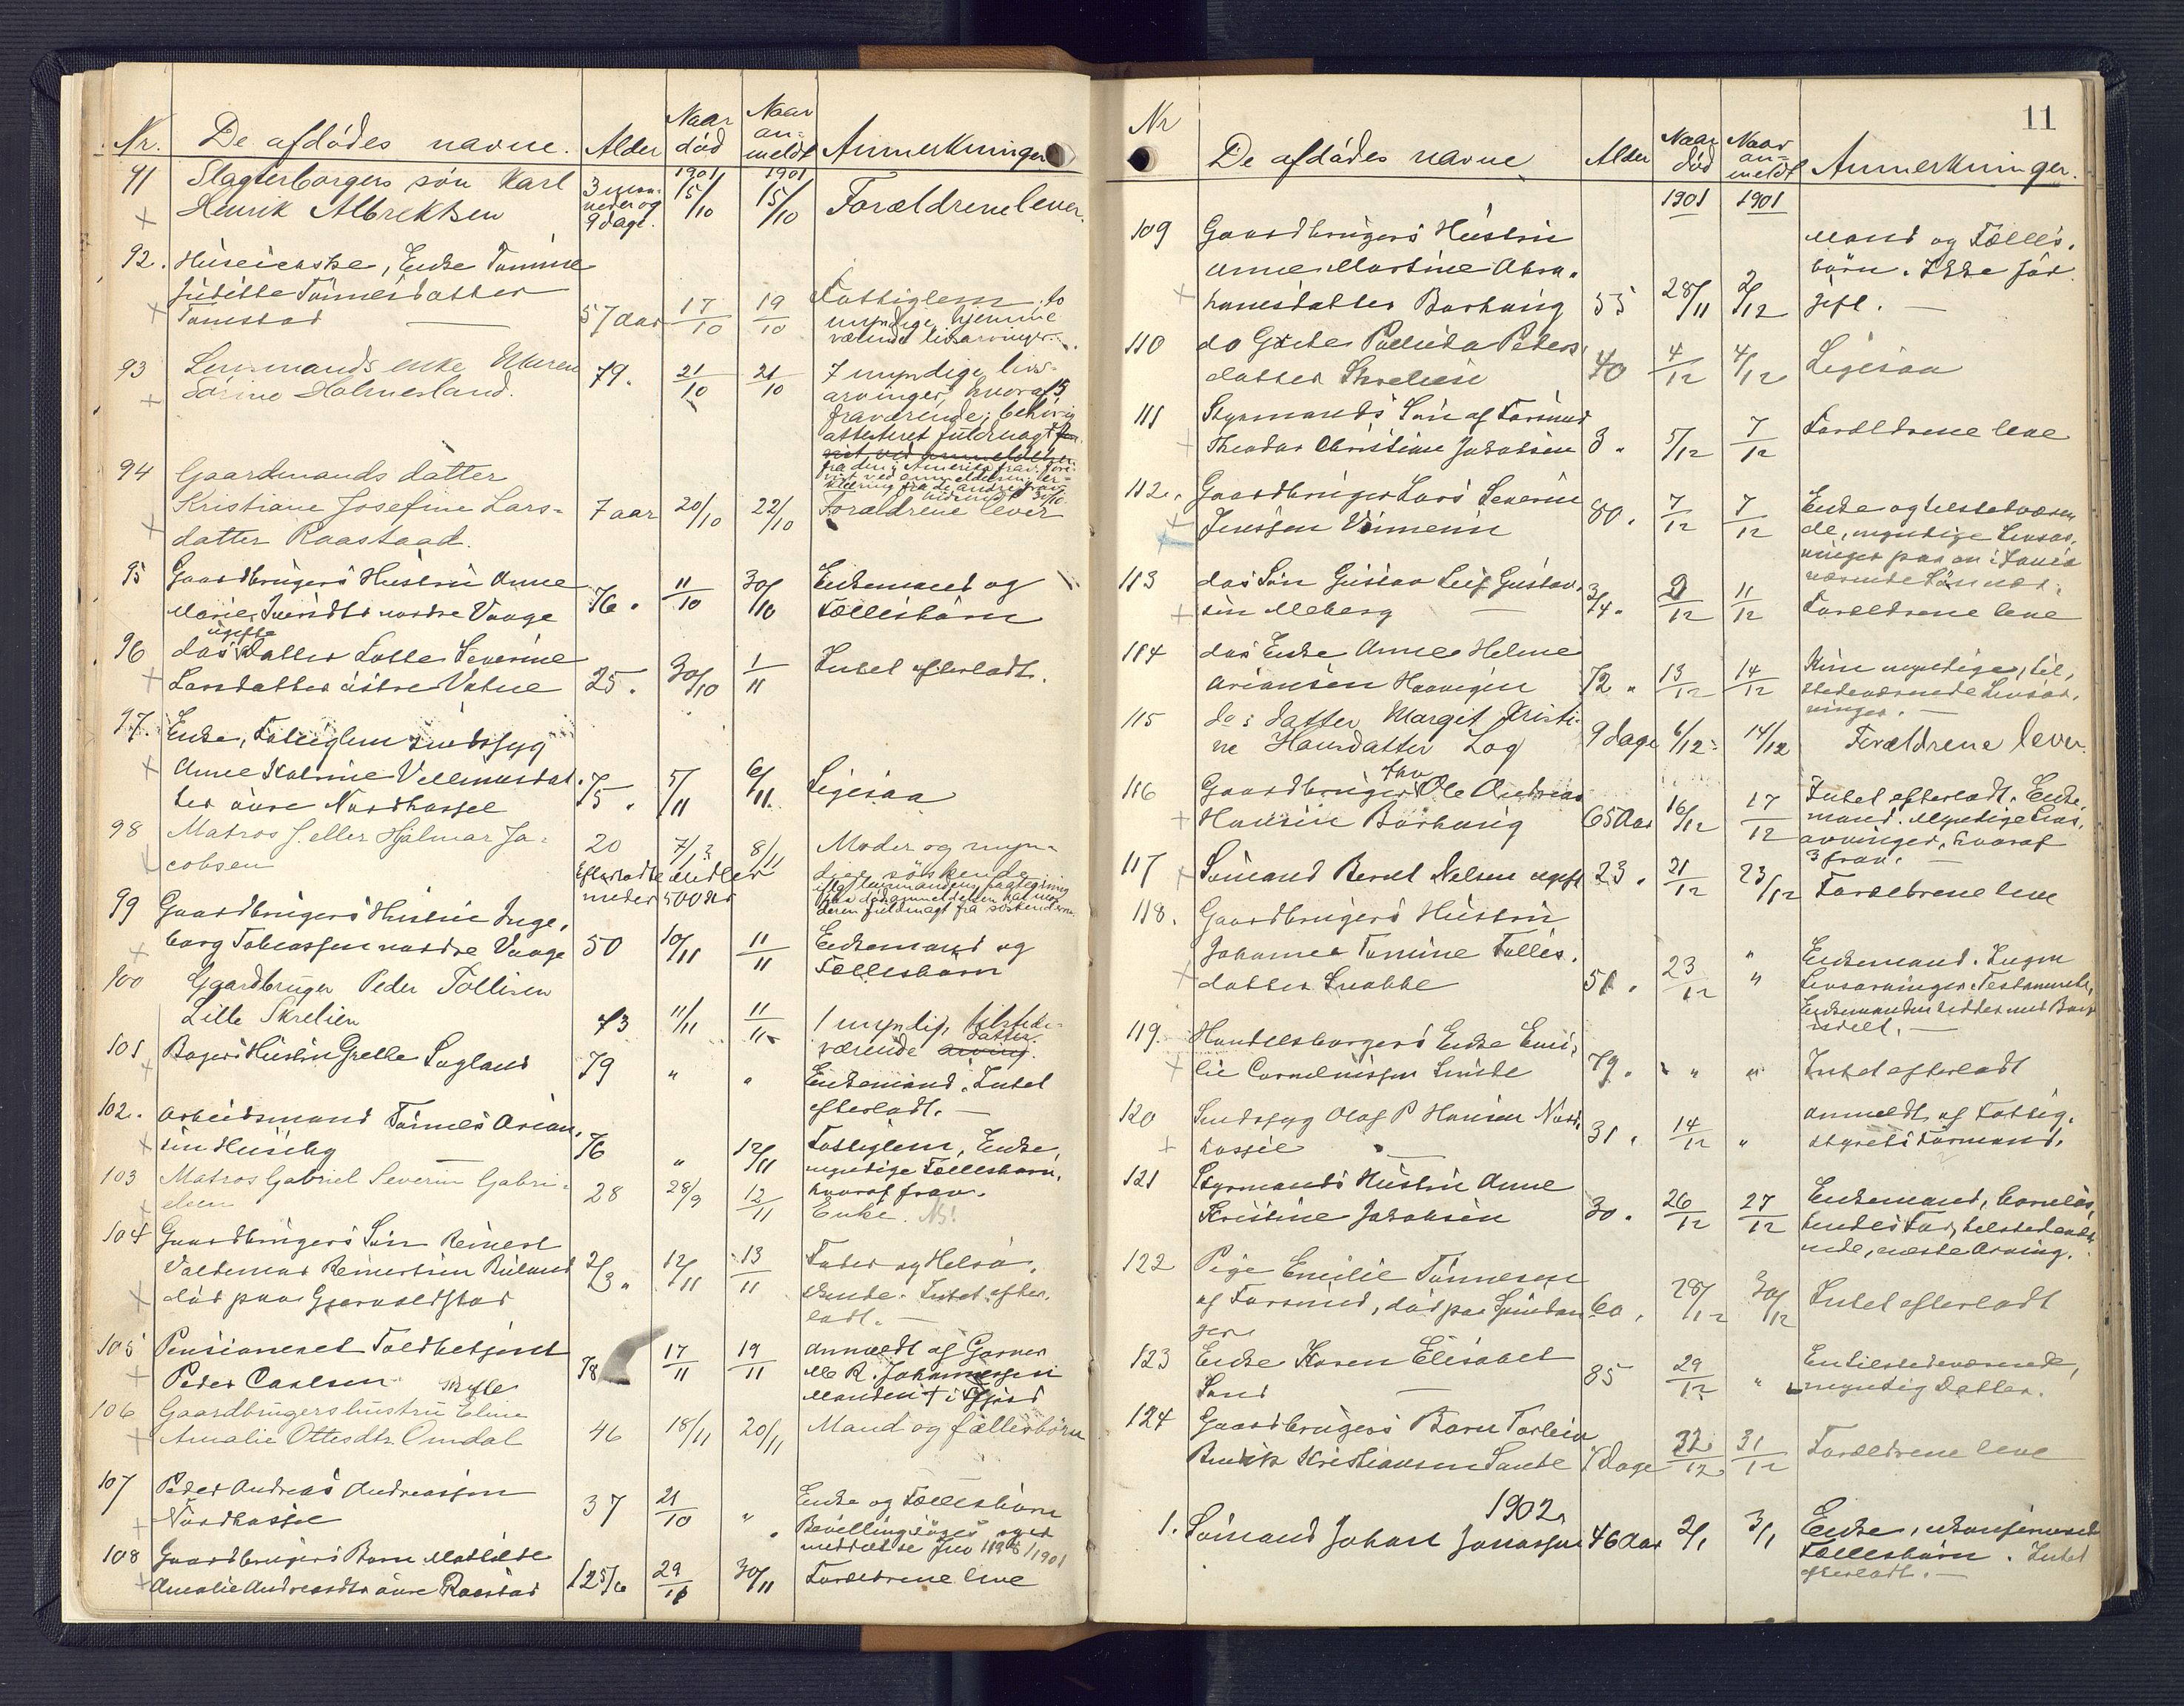 Nr. De afdødes navne. Alder Naar død Naar an- meldt Anmerkninger
1901 1901
91 Slagterborgers søn Karl
Henrik Albrektsen 3 maa- neder og 9 dage. 15/10 15/10 Forældrene lever.
92. Huseierske, Enke Tomine
Juditte Tønnesdatter
Tomstad 57 Aar 17/10 19/10 Fattiglem. to
myndige hjemme
værende livsarvinger.
93 Lensmands enke Maren
Torine Holmesland. 79. 21/10 21/10 7 myndige livs-
arvinger, hvoraf 5
fraværende; behörig
attesteret fuldmagt
94 Gaardmands datter
Kristiane Josefine Lars-
datter Raastaad. 7 aar 20/10 22/10 Forældrene lever
95 Gaardbrugers Hustru Anne
Marie nordre Vaage 76. 11/10 30/10 Enkemand og
Fællesbørn
96 das ugifte Datter Lotte Severine
Larsdatter østre Vatne 25. 30/10 1/11 Intet efterladt.
97. Enke, Fattiglem sindssyg
Anne Katrine Vellemusdat-
ter øvre Nordhassel 75. 5/11 6/11 Ligesaa
98 Matros J. eller Hjalmar Ja-
cobsen 20 7/? 8/11 Moder og myn-
dige söskende
Efterladte midler
neder 500 Kr
99 Gaardbrugers Hustru Inge-
borg Tobiassen nordre Vaage 50 10/11 11/11 Enkemand og
Fællesbørn
100 Gaardbruger Peder Tollisen
Lille Skrelien 73 11/11 11/11 1 myndig, tilstede-
værende datter.
101 Bagers Hustru Grethe Sogland 79 " " Enkemand. Intet
efterladt. —
102. Arbeidsmand Tønnes Arian-
sen Huseby 76 " 12/11 Fattiglem, Enke,
myndige Fællesbørn,
hvoraf frav.
103 Matros Gabriel Severin Gabri-
elsen 28 28/9 12/11 Enke. Nb!
104 Gaardbrugers Søn Reinert
Valdemar Reinertsen Røiland
død paa Gjervoldstad 2/3 " 12/11 13/11 Fader og Helsø-
skende. Intet efter-
ladt. —
105 Pensioneret Toldbetjent
Peder Carlsen 78 17/11 19/11 anmeldt af Garver
M. R. Johannessen
106 Gaardbrugershustru Eline
Amalie Ottesdtr. Omdal 46 18/11 20/11 Mand og fællesbörn
107 Peder Andreas Andreassen
Nordhassel 37 21/10 " Enke og Fællesbørn
Bevilling
108 Gaardbrugers Barn Mathilde
Amalie Andreasdtr øvre Raastad 1 25/6 29/11 30/11 Forældrene leve
11
Nr De afdødes navne Alder Naar død Naar an- meldt Anmerkninger.
1901 1901
109 Gaardbrugers Hustru
Anne Martine Abra-
hamsdatter Borhaug 55 28/11 2/12 Mand og Fælles-
børn. Ikke før
gift. —
110 do Grete Paulida Peders-
datter Skrelien 40 4/12 4/12 Ligesaa
111 Styrmands Søn af Farsund
Theodor Christian Jakobsen 3 " 5/12 7/12 Forældrene leve
112. Gaardbruger Lars Severin
Jenssen Vinnem 80. 7/12 7/12 Enke og tilstedeværen
de, myndige Livsar-
vinger
113 das Søn Gustav Leif Gustav-
sen Meberg — 3/4. 9/12 11/12 Forældrene leve
114 das Enke Anne Helene
Ariansen Haavigen 72 " 13/12 14/12 Kun myndige, til-
stedeværende Livsar-
vinger. —
115 do: datter Margit Kristi-
ne Hansdatter Log 9 dage 6/12 14/12 Forældrene lever.
116 Gaardbruger Ole Andreas
Hansen Borhaug 65 Aar 16/12 17/12 Intet efterladt. Enke-
mand. Myndige Livs-
arvinger, hvoraf
3 frav. —
117 Sømand Berent Nelsen ugift 23. 21/12 23/12 Forældrene leve
118. Gaardbrugers Hustru
Johanne Tomine Tolles-
datter Snekke 51. 23/12 " Enkemand. Ingen
Livsarvinger. Testamente,
119. Handelsborgers Enke Emi-
lie Corneliussen Lunde 79. " " Intet efterladt
120 Sindssyg Olaf P Hansen Nord-
hassel — 31. 14/12 " anmeldt af Fattig-
styrets Formand.
121 Styrmands Hustru Anne
Kristine Jakobsen 30. 26/12 27/12 Enkemand, barnløs,
hendes Far, tilstedevæ-
rende, næste Arving.
122 Pige Emilie Tønnesen
af Farsund, død paa 60. 28/12 30/12 Intet efterladt
123 Enke Karen Elisabet
Sand — 85 29/12 " En tilstedeværende,
myndig Datter.
124 Gaardbrugers Barn Torleiv
Kristiansen Sande 7 Dage 31/12 31/12 Forældrene leve
1902
1. Sømand Johan Jonassen 46 Aar 2/1 3/1 Enke, ukonfirmerede
Fællesbørn. Intet
efterladt. —